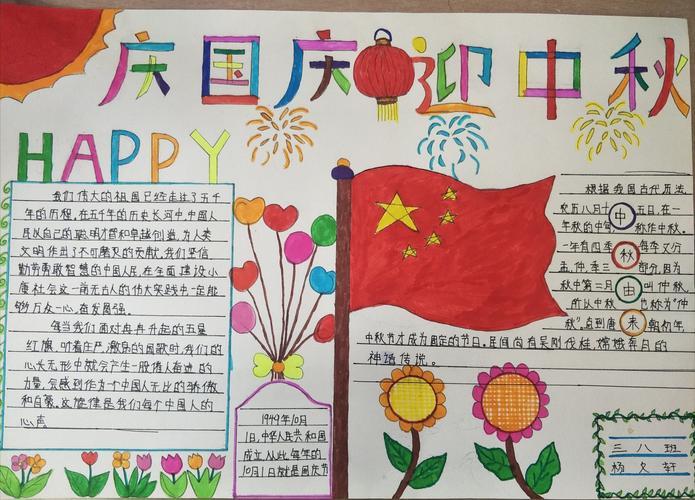 庆国庆迎中秋
HAPPY
我们伟大的祖国已经走过了五千
年的历程,在五千年的历史长河中,中国人
民以自己的聪明才智和卓越创造,为人类
文明作出了不可磨灭的贡献,我们坚信
勤劳勇敢智慧的中国人民,在全面建设小
康社会这一前无古人的伟大实践中一定能
够万众一心,奋发图强。
每当我们面对冉冉升起的五星
红旗,听着庄严、激昂的国歌时,我们的
心头无形中就会产生一股催人奋进的
力量,会感到作为个中国人无比的骄傲
和自豪,这旋律是我们每个中国人的
心声
1949年10月
1日,中华人民共和国
成立,从此每年的
10月1日就是国庆节
根据我国古代历法,
农历八月十五日,在一
年秋的中旬,称作中秋。
一年有四季,每季又分
孟,仲,季三部分,因为
秋中第二月叫仲秋,
所以中秋也称为"仲
秋",直到唐朝初年
中秋节才成为固定的节日。民间尚有吴刚伐桂,嫦娥奔月的
神话传说。
中
秋
由
来
三八班
杨久轩